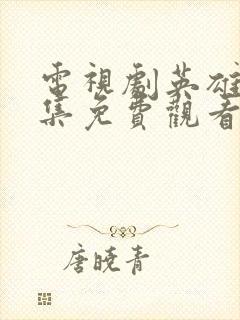 電視劇英雄
集免費觀看
唐曉青